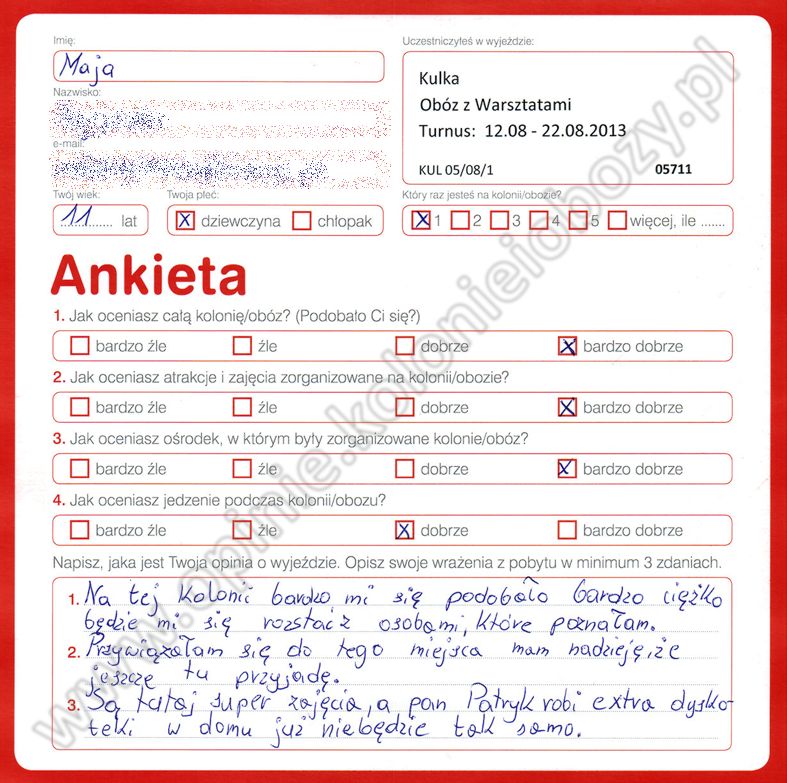 Imię:
Maja
Nazwisko:
e-mail:
Twój wiek:
11 lat
Twoja płeć:
dziewczyna chłopak
Uczestniczyłeś w wyjeździe:
Kulka
Obóz z Warsztatami
Turnus: 12.08 - 22.08.2013
KUL 05/08/1 05711
Który raz jesteś na kolonii/obozie?
1 2 3 4 5 więcej, ile .......
Ankieta
1. Jak oceniasz całą kolonię/obóz? (Podobało Ci się?)
bardzo źle źle dobrze bardzo dobrze
2. Jak oceniasz atrakcje i zajęcia zorganizowane na kolonii/obozie?
bardzo źle źle dobrze bardzo dobrze
3. Jak oceniasz ośrodek, w którym były zorganizowane kolonie/obóz?
bardzo źle źle dobrze bardzo dobrze
4. Jak oceniasz jedzenie podczas kolonii/obozu?
bardzo źle źle dobrze bardzo dobrze
Napisz, jaka jest Twoja opinia o wyjeździe. Opisz swoje wrażenia z pobytu w minimum 3 zdaniach.
1. Na tej kolonii bardzo mi się podobało bardzo ciężko
będzie mi się rozstać z osobami, które poznałam.
2. Przywiązałam się do tego miejsca mam nadzieję, że
jeszcze tu przyjadę.
3. Są tutaj super zajęcia, a pan Patryk robi extra dysko-
teki w domu już niebędzie tak samo.
www.opinie.kolonieiobozy.pl